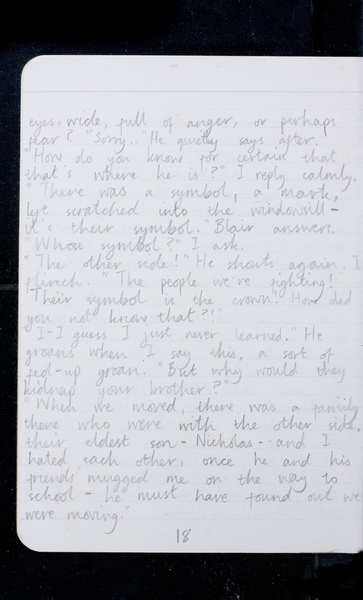 eyes wide, full of anger, or perhaps
fear? "Sorry." He quietly says after.
"How do you know for certain that
that's where he is?" I reply calmly.
"There was a symbol, a mark,
left scratched into the windowsill -
it's their symbol. Blair answers.
"Whose symbol?" I ask.
"The other side!" He shouts again. I
flinch. "The people we're fighting!
Their symbol is the crown! How did
you not know that?!"
"I-I guess I just never learned." He
groans when I say this, a sort of
fed-up groan. "But why would they
kidnap your brother?"
"When we moved, there was a family
there who were with the other side,
their eldest son - Nicholas - and I
hated each other, once he and his
friends mugged me on the way to
school - he must have found out we
were moving."
18